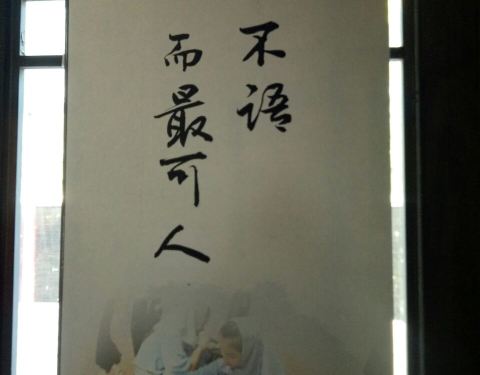 不语
而最可人